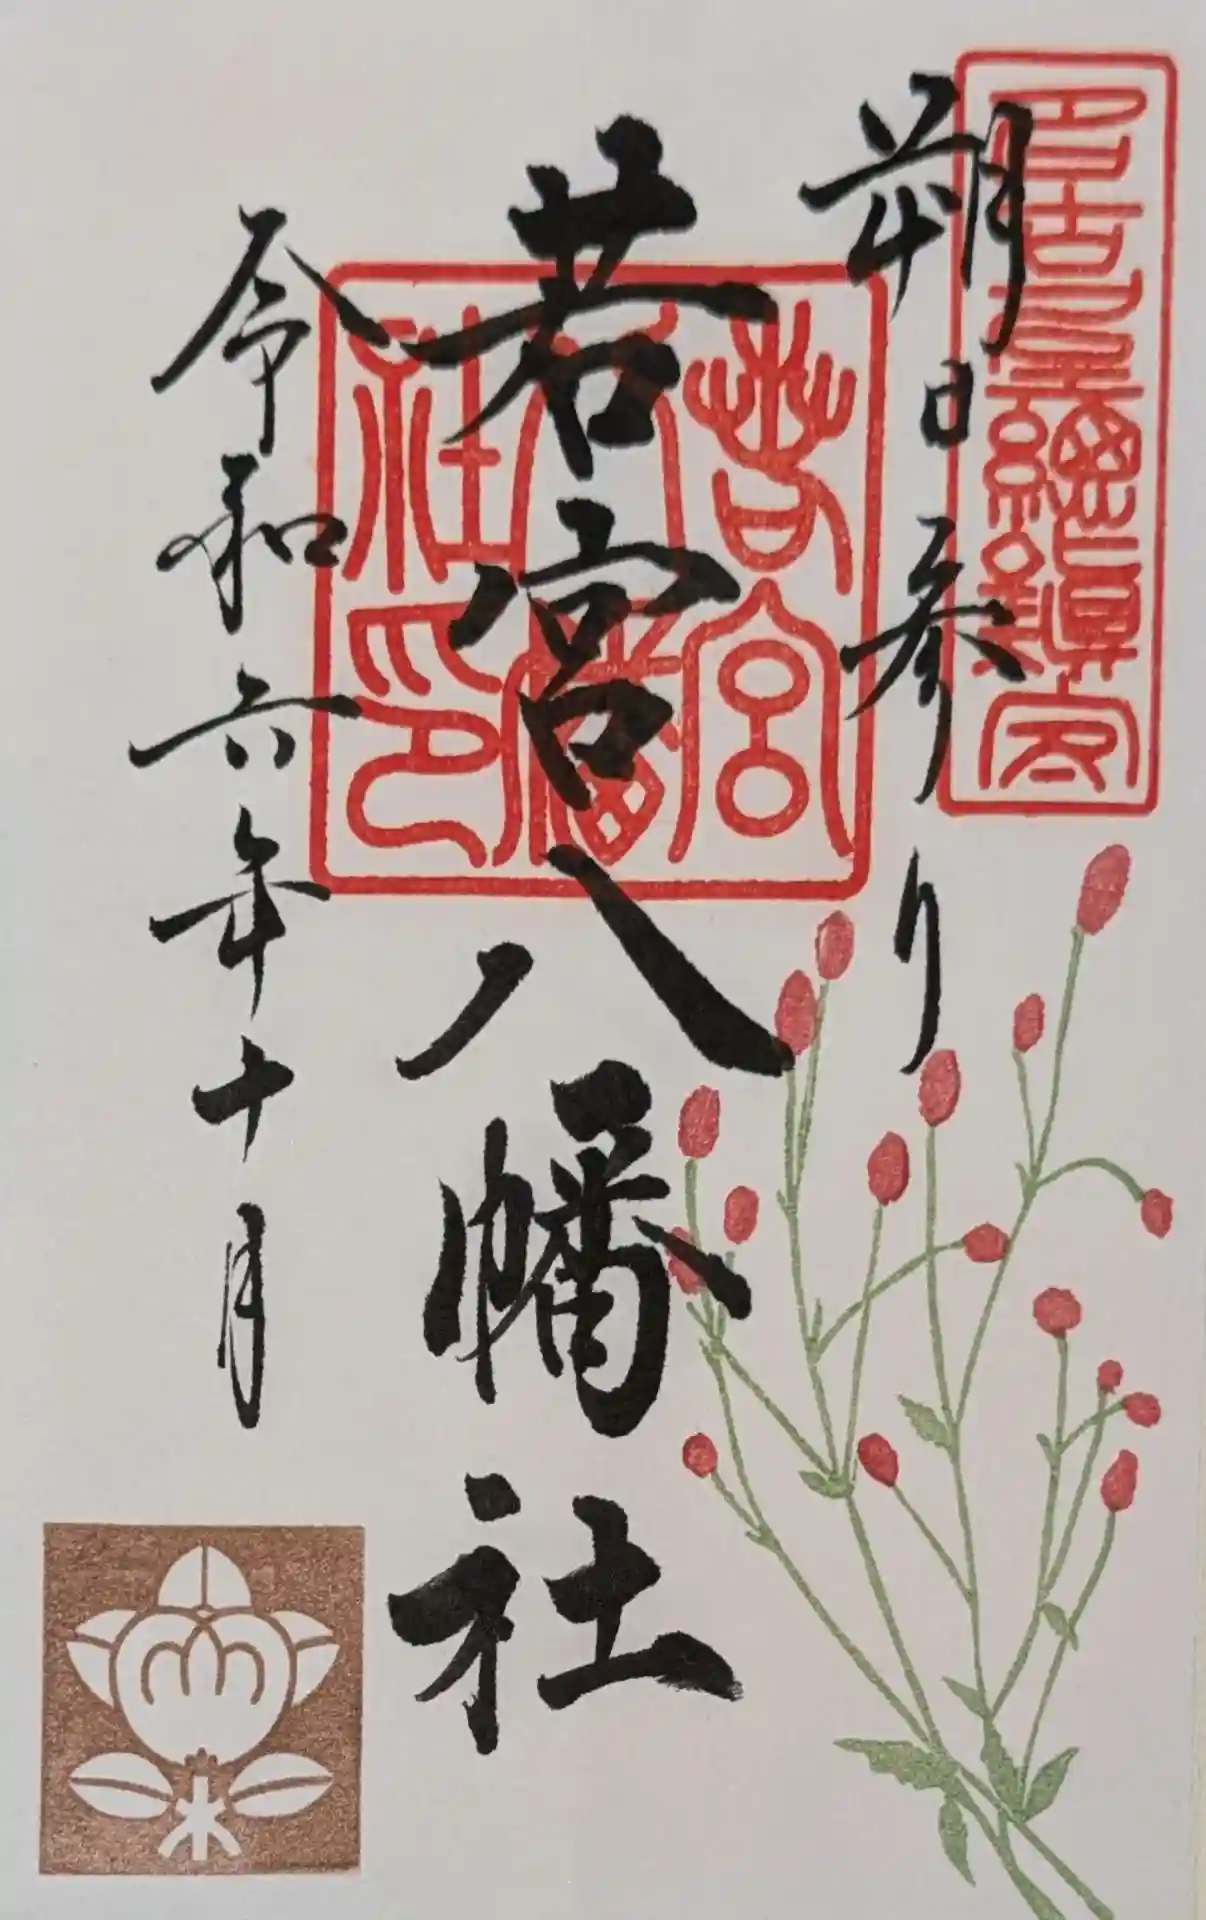 名古屋總鎮守
朔日参り
若宮八幡社
若宮八幡社印
令和六年十月